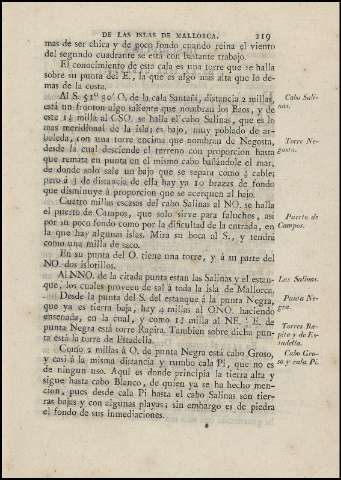 DE LAS ISLAS DE MALLORCA. 219
mas de ser chica y de poco fondo cuando reina el viento
del segundo cuadrante se está con bastante trabajo.
El conocimiento de esta cala es una torre que se halla
sobre su punta del E, la que es algo mas alta que lo de-
mas de la costa.
Al S. 51° 30' O. de la cala Santañí, distancia 2 millas,
está un fronton algo saliente que nombran los Baos, y de
este 1½ milla al CSO. se halla el cabo Salinas, que es lo
mas meridional de la isla; es bajo, muy poblado de ar-
boleda, con una torre encima que nombran de Negosta,
desde la cual desciende el terreno con proporcion hasta
que remata en punta en el mismo cabo bañándole el mar,
de donde solo sale un bajo que se separa como ½ cable;
pero á 3 de distancia de ella hay ya 10 brazas de fondo
que disminuye á proporcion que se acerquen al bajo.
Cuatro millas escasas del cabo Salinas al NO. se halla
el puerto de Campos, que solo sirve para faluchos, asi
por su poco fondo como por la dificultad de la entrada, en
la que hay algunas islas. Mira su boca al S., y tendrá
como una milla de saco.
En su punta del O. tiene una torre, y á su parte del
NO. dos islotillos.
Al NNO. de la citada punta estan las Salinas y el estan-
que, los cuales proveen de sal á toda la isla de Mallorca.
Desde la punta del S. del estanque á la punta Negra,
que ya es tierra baja, hay 4 millas al ONO. haciendo
ensenada, en la cual, y como 1½ milla al NE. ¼ E. de
punta Negra está torre Rapira. Tambien sobre dicha pun-
ta está la torre de Estadella.
Como 2 millas á O. de punta Negra está cabo Groso,
y casi á la misma distancia y rumbo cala Pi, que no es
de ningun uso. Aqui es donde principia la tierra alta y
sigue hasta cabo Blanco, de quien ya se ha hecho men-
cion, pues desde cala Pi hasta el cabo Salinas son tier-
ras bajas y con algunas playas; sin embargo es de piedra
el fondo de sus inmediaciones.
Cabo Sali-
nas.
Torre Ne-
gosta.
Puerto de
Campos.
Las Salinas.
Punta Ne-
gra.
Torres Ra-
pita y de Es-
tadella.
Cabo Gro-
so y cala Pi.